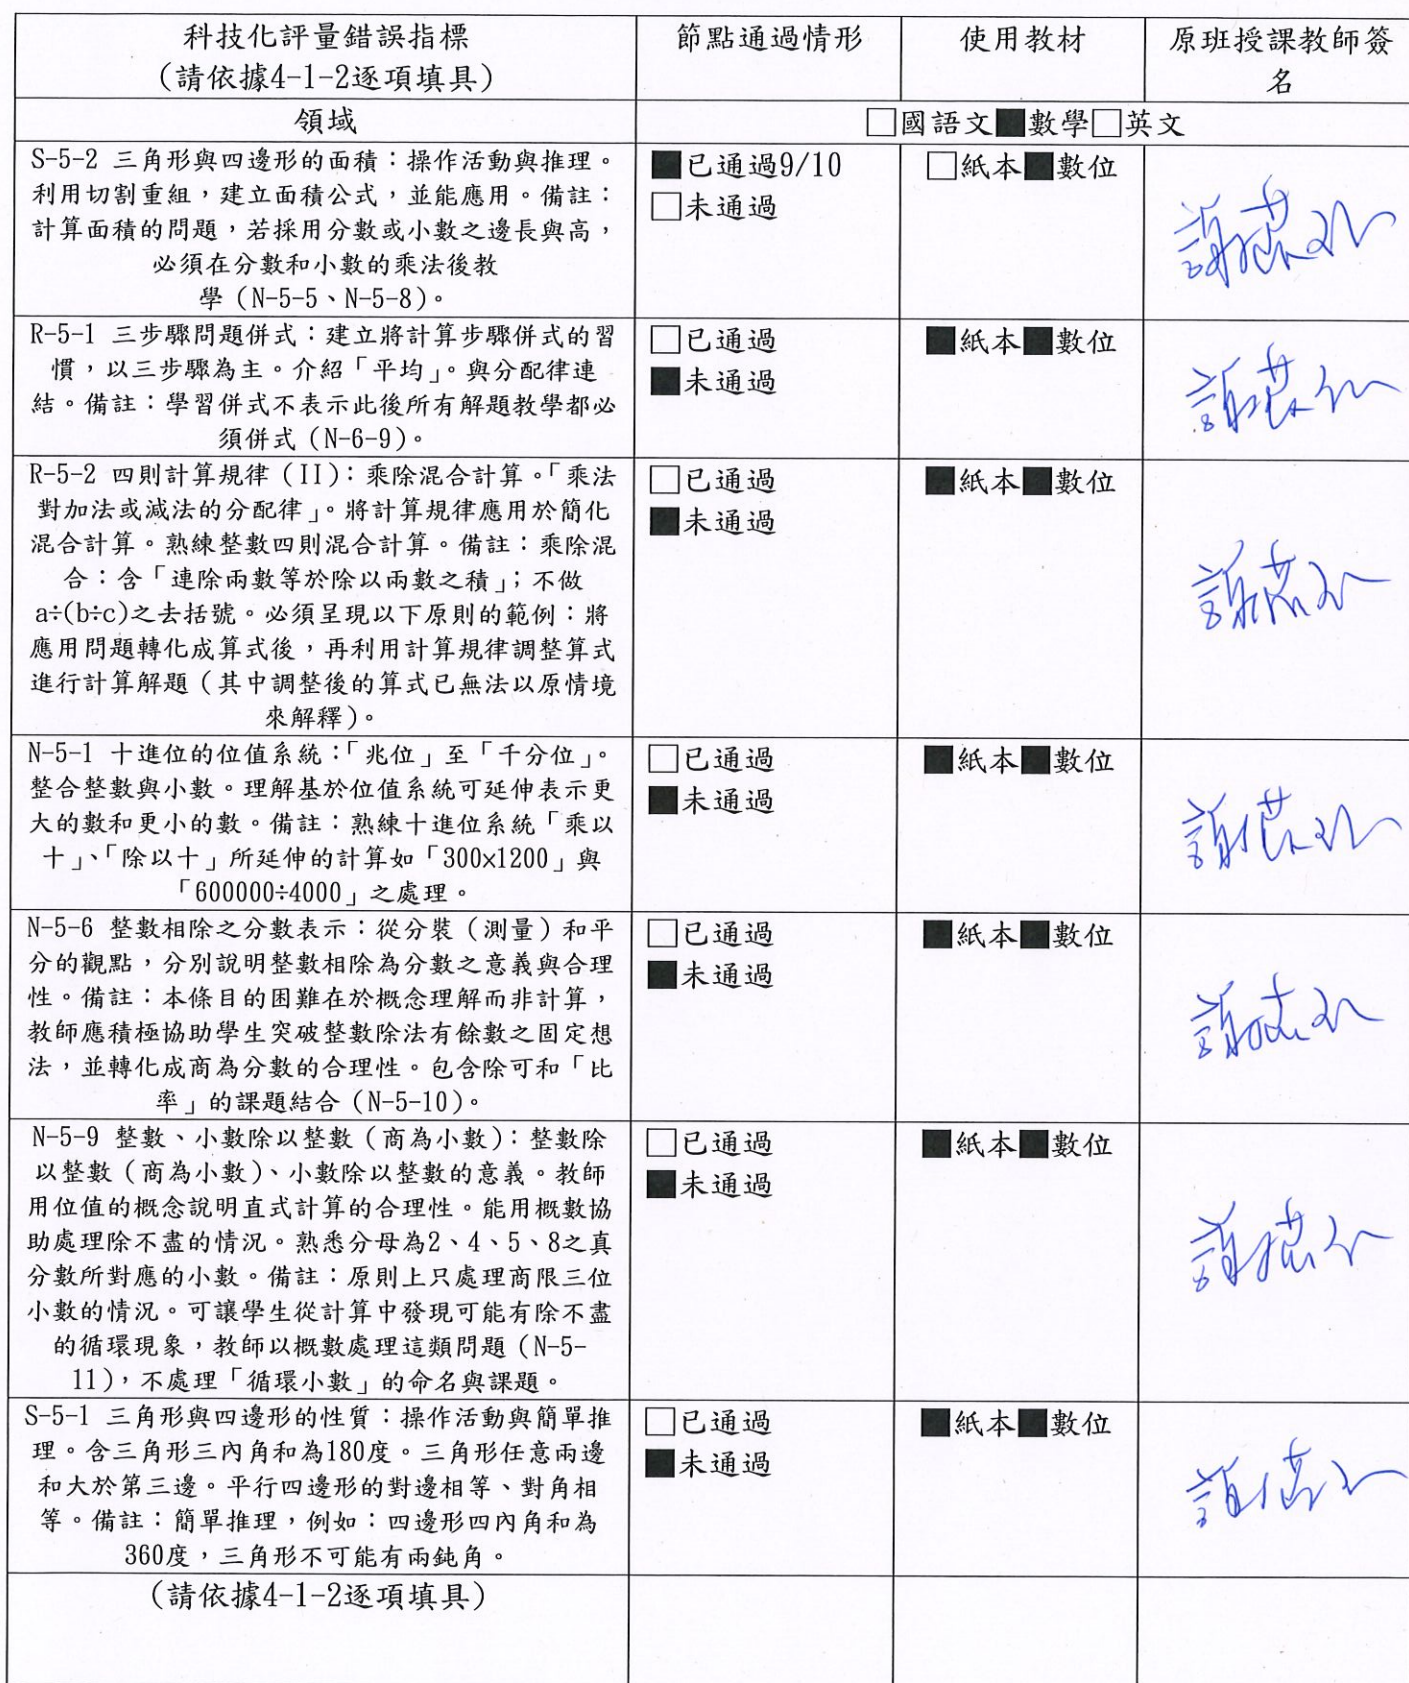 科技化評量錯誤指標
(請依據4-1-2逐項填具)
節點通過情形
使用教材
原班授課教師簽
名
領域
□國語文■數學□英文
S-5-2 三角形與四邊形的面積：操作活動與推理。
利用切割重組，建立面積公式，並能應用。備註：
計算面積的問題，若採用分數或小數之邊長與高，
必須在分數和小數的乘法後教
學（N-5-5、N-5-8）。
■已通過9/10
□未通過
□紙本■數位
R-5-1 三步驟問題併式：建立將計算步驟併式的習
慣，以三步驟為主。介紹「平均」。與分配律連
結。備註：學習併式不表示此後所有解題教學都必
須併式（N-6-9）。
□已通過
■未通過
■紙本■數位
R-5-2 四則計算規律（II）：乘除混合計算。「乘法
對加法或減法的分配律」。將計算規律應用於簡化
混合計算。熟練整數四則混合計算。備註：乘除混
合：含「連除兩數等於除以兩數之積」；不做
a÷(b÷c)之去括號。必須呈現以下原則的範例：將
應用問題轉化成算式後，再利用計算規律調整算式
進行計算解題（其中調整後的算式已無法以原情境
來解釋）。
□已通過
■未通過
■紙本■數位
N-5-1 十進位的位值系統：「兆位」至「千分位」。
整合整數與小數。理解基於位值系統可延伸表示更
大的數和更小的數。備註：熟練十進位系統「乘以
十」、「除以十」所延伸的計算如「300×1200」與
「600000÷4000」之處理。
□已通過
■未通過
■紙本■數位
N-5-6 整數相除之分數表示：從分裝（測量）和平
分的觀點，分別說明整數相除為分數之意義與合理
性。備註：本條目的困難在於概念理解而非計算，
教師應積極協助學生突破整數除法有餘數之固定想
法，並轉化成商為分數的合理性。包含除可和「比
率」的課題結合（N-5-10）。
□已通過
■未通過
■紙本■數位
N-5-9 整數、小數除以整數（商為小數）：整數除
以整數（商為小數）、小數除以整數的意義。教師
用位值的概念說明直式計算的合理性。能用概數協
助處理除不盡的情況。熟悉分母為2、4、5、8之真
分數所對應的小數。備註：原則上只處理商限三位
小數的情況。可讓學生從計算中發現可能有除不盡
的循環現象，教師以概數處理這類問題（N-5-
11），不處理「循環小數」的命名與課題。
□已通過
■未通過
■紙本■數位
S-5-1 三角形與四邊形的性質：操作活動與簡單推
理。含三角形三內角和為180度。三角形任意兩邊
和大於第三邊。平行四邊形的對邊相等、對角相
等。備註：簡單推理，例如：四邊形四內角和為
360度，三角形不可能有兩鈍角。
□已通過
■未通過
■紙本■數位
(請依據4-1-2逐項填具)